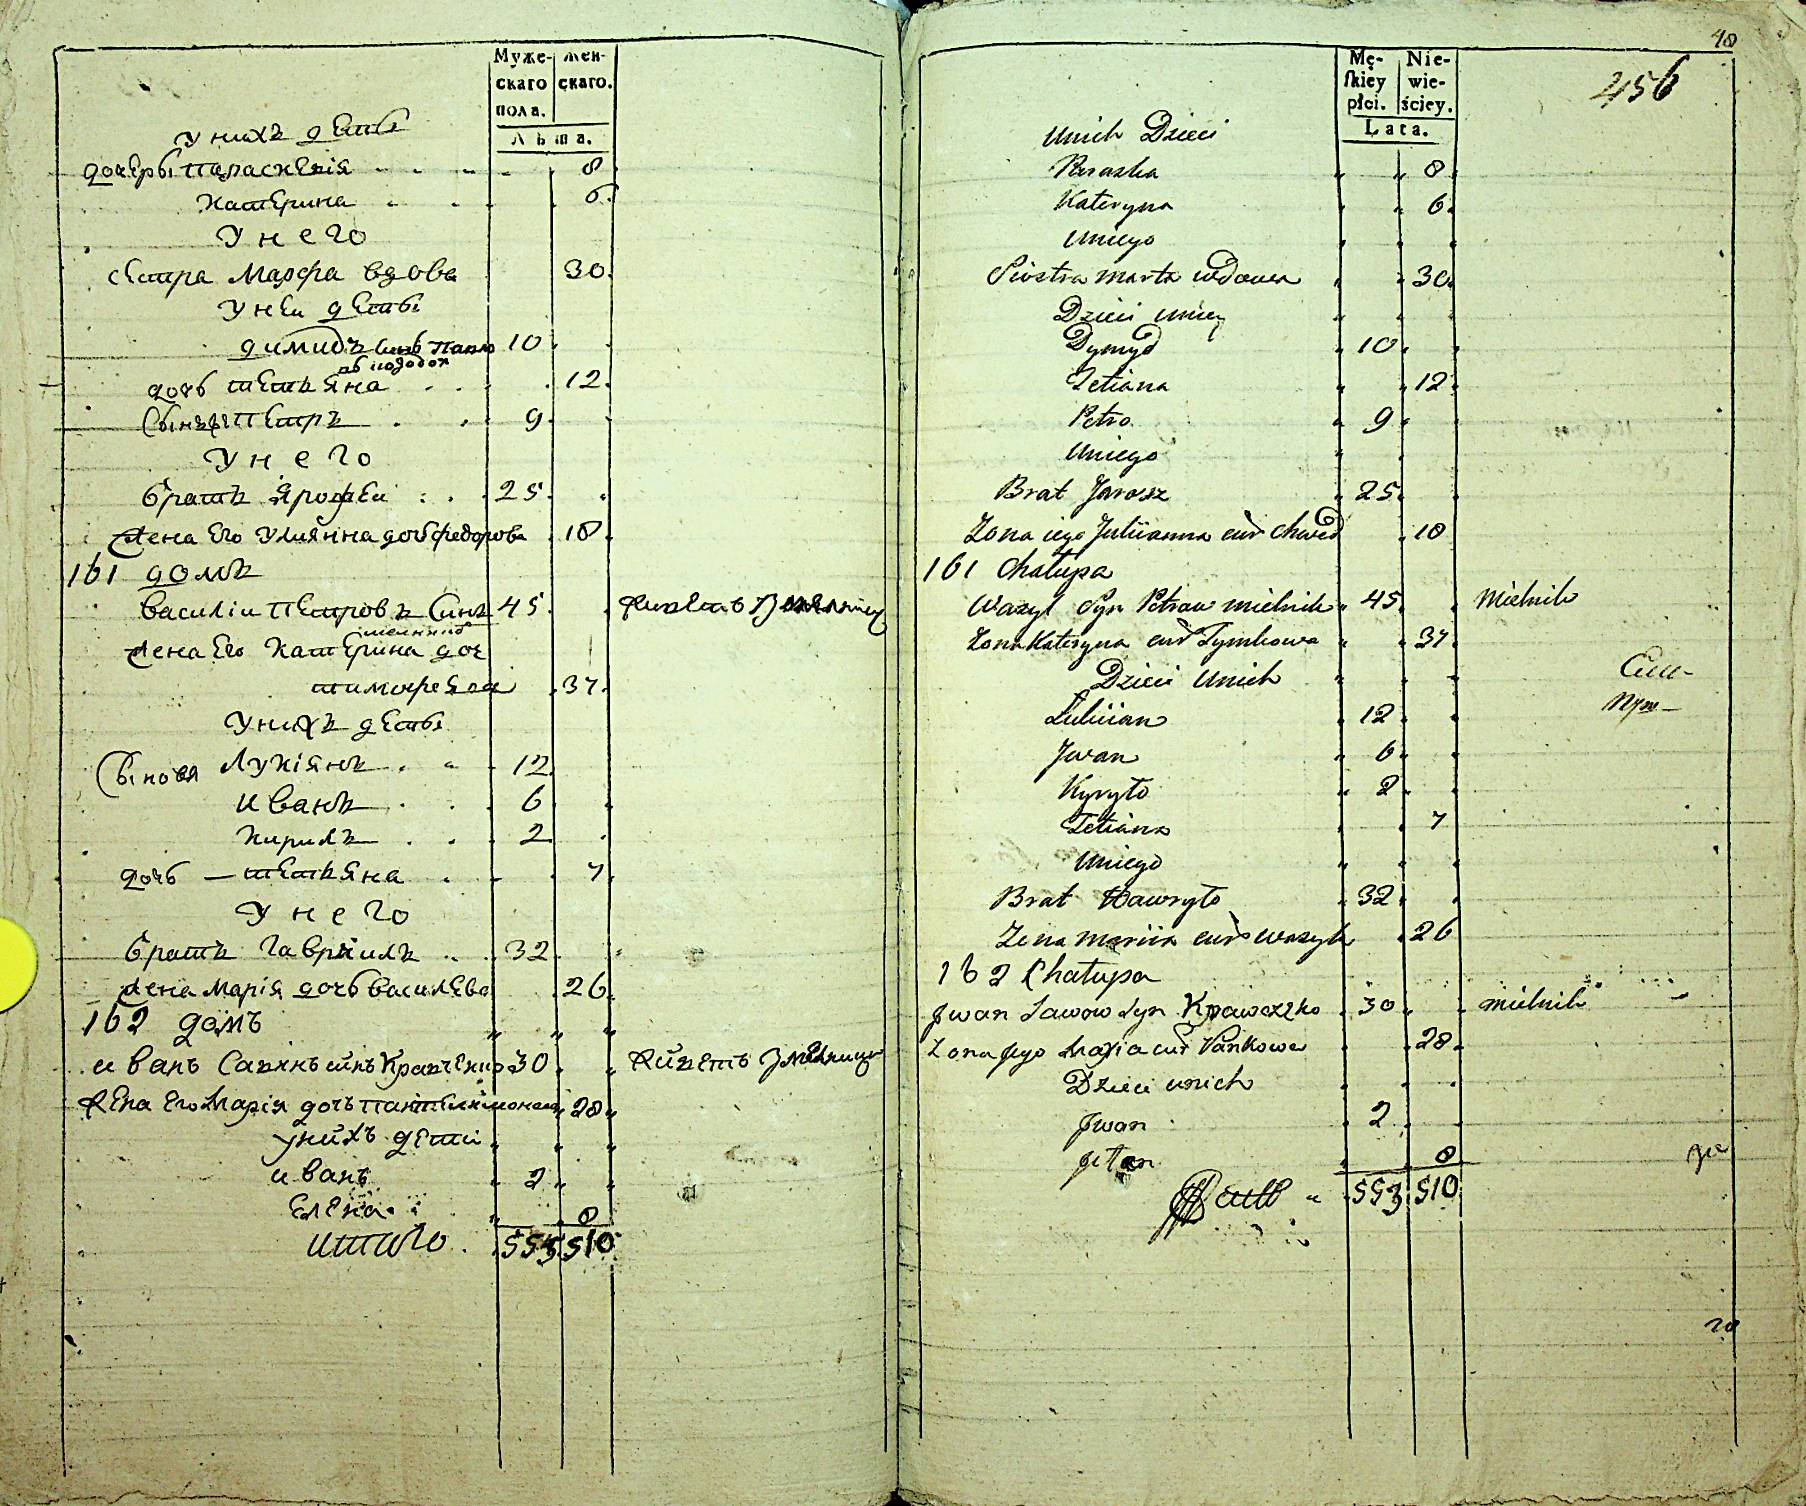 Муже-
скаго
пола.
Жен-
скаго.
Лѣта.
У нихъ дети
дочеры Параскевія 8
Катерина 6
У него
сестра Марфа вдова 30
У неи дети
димидъ синъ 10
дочь тетъяна 12
Сынъ Петръ 9
У него
братъ Ярофеи 25
жена Его Улиянна дочь федорова 18
161 домъ
Василіи Петровъ Синъ 45
жена Его Катерина доч
тимофеява 37
У нихъ дети
Сыновя Лукіянъ 12
иванъ 6
Кирилъ 2
дочь — тетъяна 7
У него
братъ Гавріилъ 32
жена Марія дочь Василева 26
162 домъ
иванъ Савинъ синъ Кравченко 30
жена Его Марія дочь 28
унихъ дети
иванъ 2
Елена 8
итого 553 510
48
456
Mę-
skiey
płci.
Nie-
wie-
ściey.
Lata.
Unich Dzieci
Paraska 8
Kateryna 6
Uniego
Siostra marta wdowa 30
Dzieci Uniey
Dymyd 10
Tetiana 12
Petro 9
Uniego
Brat Jarosz 25
Zona iego Juliianna cur Chwed 18
161 Chałupa
Wasyl Syn Petraw mielnik 45 Mielnik
Zona Kateryna cur Tymkowa 37
Dzieci Unich
Lukiian 12
Jwan 6
Kyryło 2
Tetiana 7
Uniego
Brat Hawryło 32
Zona mariia cur Wasyla 26
162 Chałupa
Jwan Sawow Syn Krawczko 30 mielnik
Zona Jego Maryia cur Pankowa 28
Dzieci unich
Jwan 2
8
553 510